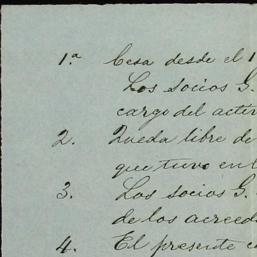 1.ª Cesa desde el 1
Los Socios G.
cargo del activ
2. Queda libre de
que tuvo en l
3. Los socios G.
de los acreed
4. El presente c